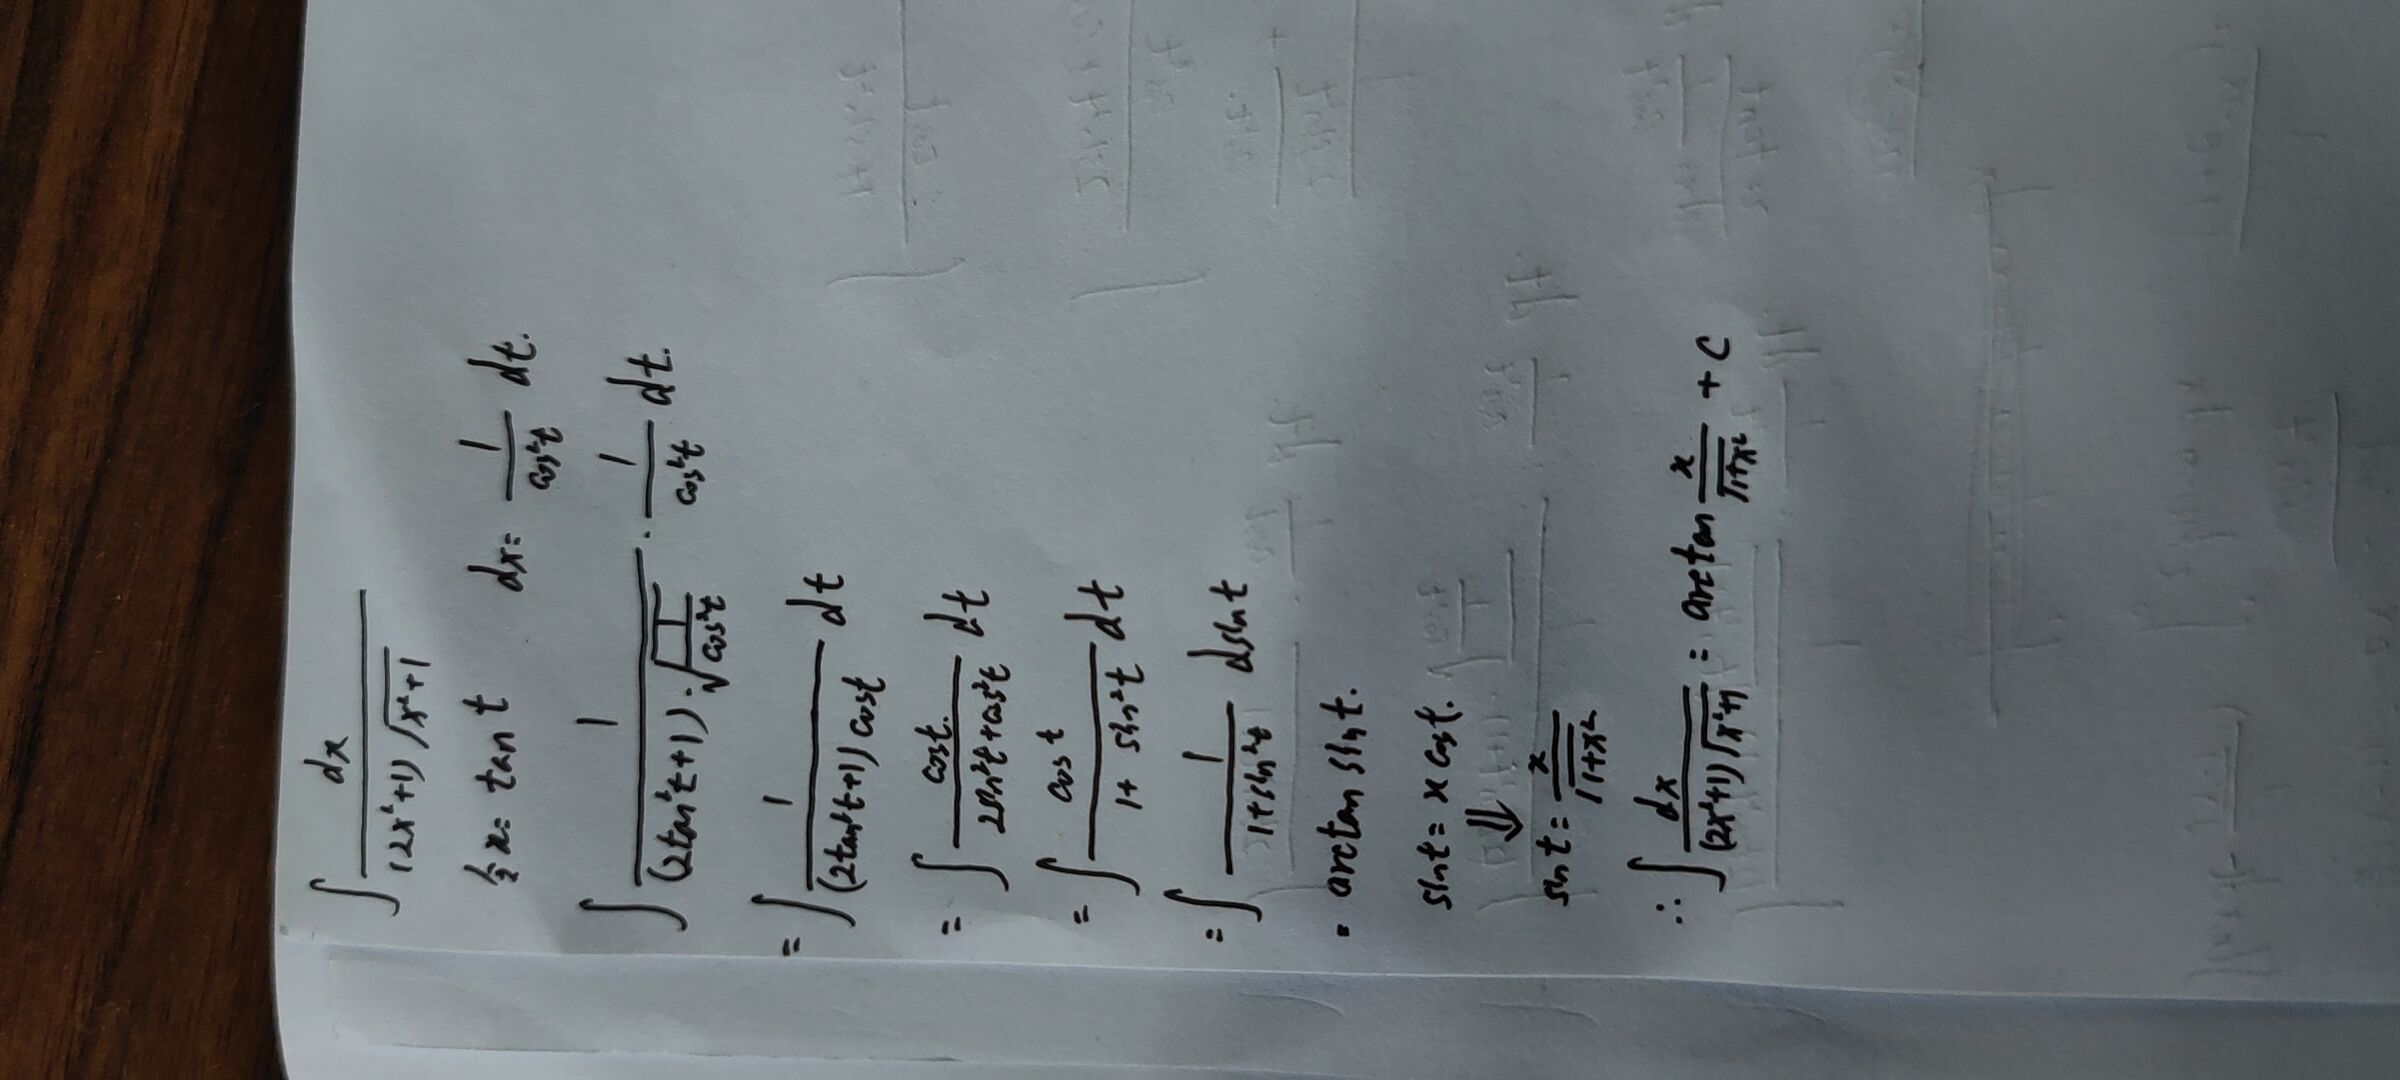 ∫ dx / (2x²+1)√(x²+1)
令 x = tan t    dx = 1/cos²t dt.
∫ 1 / (2tan²t+1)·√(1/cos²t) · 1/cos²t dt.
= ∫ 1 / (2tan²t+1) cost dt
= ∫ cost. / 2sin²t+cos²t dt
= ∫ cos t / 1+ sin²t dt
= ∫ 1 / 1+sin²t dsint
= arctan sint.
sint = x cost.
⇓
sint = x / √(1+x²)
∴ ∫ dx / (2x²+1)√(x²+1) = arctan x / √(1+x²) + C